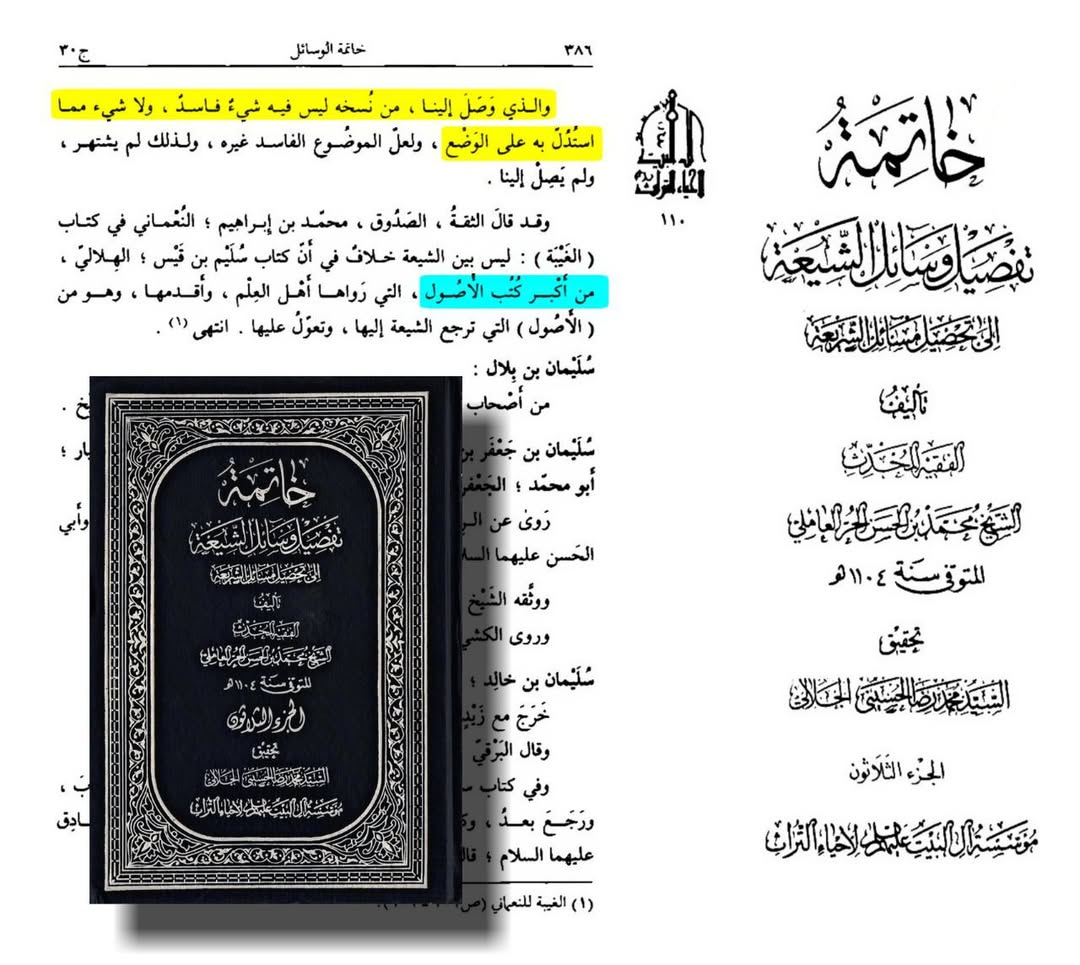 ٣٨٦
خاتمة الوسائل
ج٣٠
والـذي وَصَلَ إلينـا ، من نُسخه ليس فيـه شيءٌ فـاسـدٌ ، ولا شيء ممـا
استُدُلّ به على الوَضْع ، ولعلّ الموضُـوع الفاسد غيره ، ولـذلك لم يشتهـر ،
ولم يَصِلْ إلينا .
وقـد قالَ الثقـةُ ، الصَدُوق ، محمّـد بن إِبـراهيم ؛ النُعْمـاني في كتـاب
( الغَيْبَة ) : ليس بين الشيعة خـلافٌ في أنّ كتاب سُلَيْم بن قَيْس ؛ الهِـلاليّ ،
من أَكْبـر كُتُب الأصُـول ، التي رَواهـا أهْـل العِلْم ، وأقـدمهـا ، وهـو من
( الأُصُول ) التي ترجع الشيعة إليها ، وتعوّلُ عليها . انتهى (١) .
سُلَيْمان بن بِلال :
من أَصْحاب
خ .
سُلَيْمان بن جَعْفَر بن
ار ؛
أبو محمّد ؛ الجَعْفر
رَوىٰ عن الر
وأَبي
الحَسن عليهما السلا
ووثَّقه الشَيْخ
وروى الكشي
سُلَيْمان بن خالِد ؛
خَرَجَ مع زَيْدٍ
وقال البَرْقيّ
وفي كتاب س
بَ ،
ورَجَـعَ بعـدُ ، وك
ـادِق
عليهما السلام ؛ قال
(١) الغيبة للنعماني (ص
خاتمة
تفصيل وسائل الشيعة
إلى تحصيل مسائل الشريعة
تأليف
الفقيه المحدّث
الشيخ محمد بن الحسن الحر العاملي
المتوفى سنة ١١٠٤ هـ
الجزء الثلاثون
تحقيق
السيد محمد رضا الحسيني الجلالي
مؤسسة آل البيت عليهم السلام لإحياء التراث
١١٠
خاتمة
تفصيل وسائل الشيعة
إلى تحصيل مسائل الشريعة
تأليف
الفقيه المحدّث
الشيخ محمد بن الحسن الحر العاملي
المتوفى سنة ١١٠٤ هـ
تحقيق
السيد محمد رضا الحسيني الجلالي
الجزء الثلاثون
مؤسسة آل البيت عليهم السلام لإحياء التراث